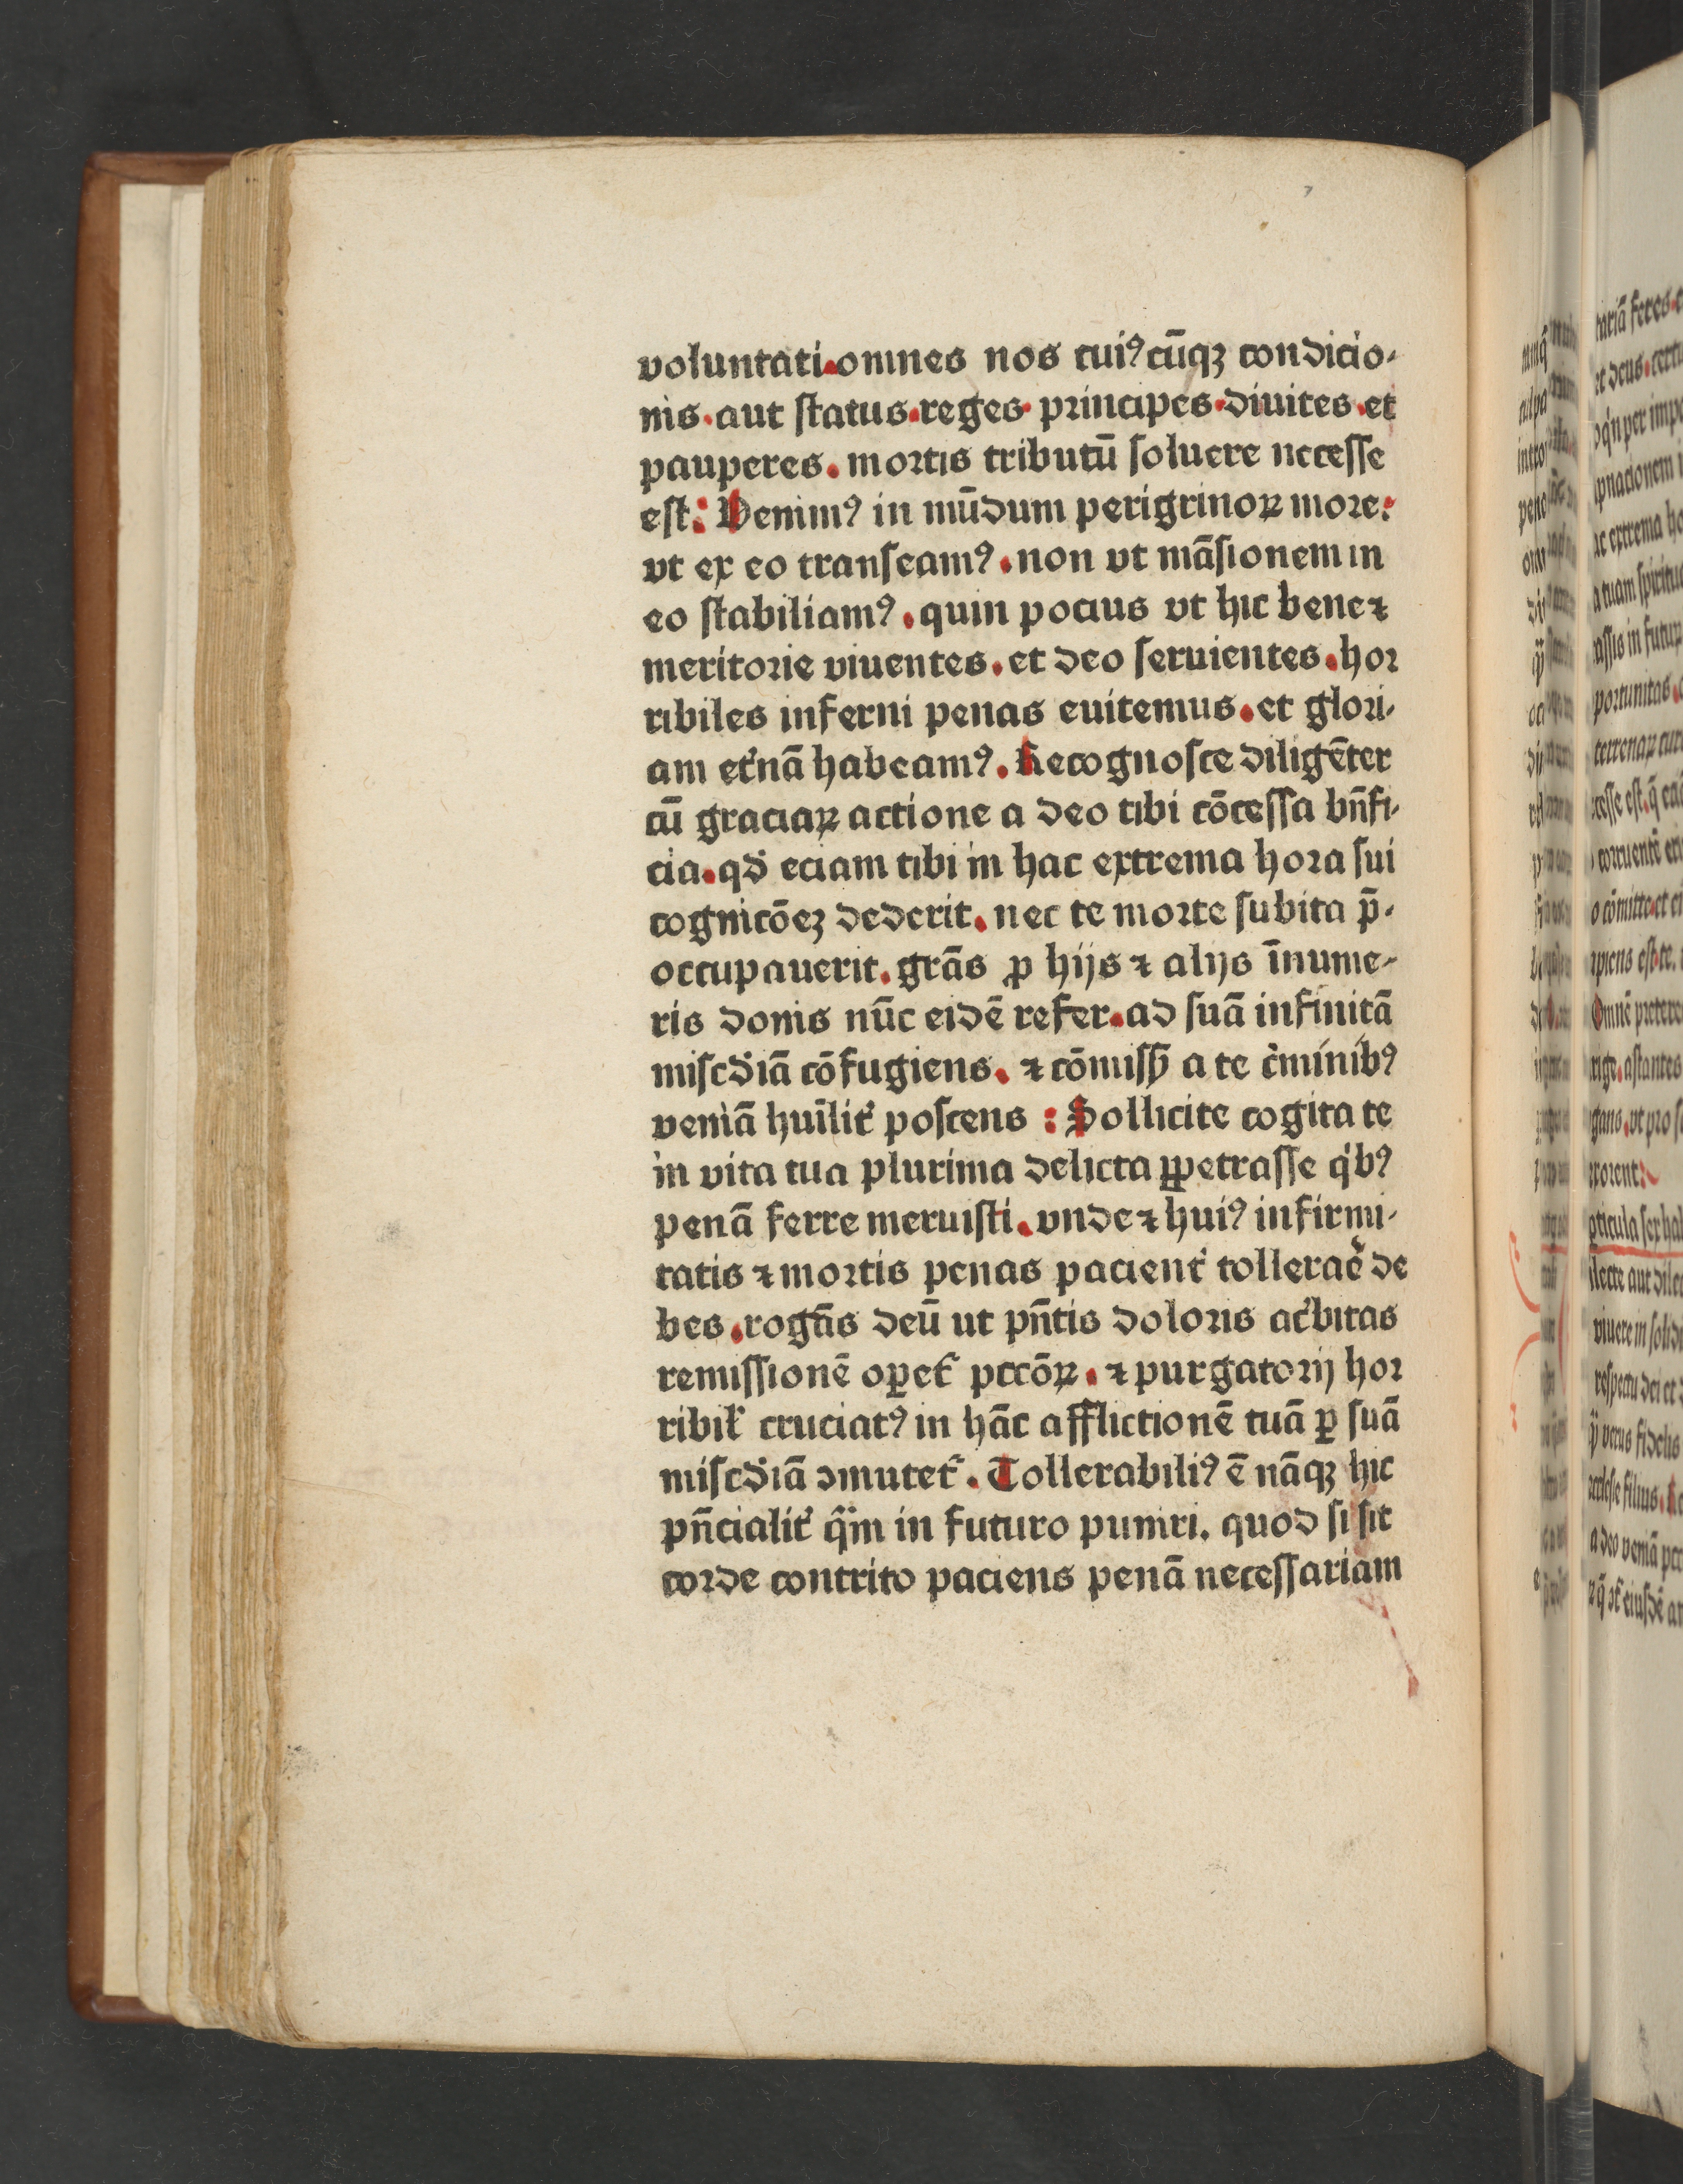 voluntati.omnes nos cuiꝰcūqꝫ condicio-
nis.aut ſtatus.reges.principes.diuites.et
pauperes.moꝛtis tributū ſoluere neceſſe
eſt: Uenimꝰ in mūdum perigrinoꝝ moꝛe:
vt ex eo tranſeamꝰ.non vt māſionem in
eo ſtabiliamꝰ.quin pocius vt hic bene ⁊
meritoꝛie viuentes.et deo ſeruientes.hoꝛ
ribiles inferni penas euitemus.et gloꝛi-
am et̓nā habeamꝰ. Recognoſce diligēter
cū graciaꝝ actione a deo tibi cōceſſa bn̄fi-
cia.qd̓ eciam tibi in hac extrema hoꝛa ſui
cognicōeꝫ dederit.nec te moꝛte ſubita p̄-
occupauerit.grās ꝓ hijs ⁊ alijs īnume-
ris donis nūc eidē refer.ad ſuā infinitā
miſcd̓iā cōfugiens. ⁊ cōmiſſꝭ a te c̓minibꝰ
veniā huīlit̓ poſcens : Sollicite cogita te
in vita tua plurima delicta ꝑpetraſſe q̓bꝰ
penā ferre meruiſti.vnde ⁊ huiꝰ infirmi-
tatis ⁊ moꝛtis penas pacient̓ tolleraē de
bes.rogās deū ut pn̄tis doloꝛis ac̓bitas
remiſſionē oꝑet̓ pccōꝝ. ⁊ purgatoꝛij hoꝛ
ribil̓ cruciatꝰ in hāc afflictionē tuā ꝑ ſuā
miſcd̓iā ꝯmutet̓. Tollerabiliꝰ ē nāqꝫ hic
pn̄cialit̓ q̄m in futuro puniri. quod ſi ſit
coꝛde contrito paciens penā neceſſariam